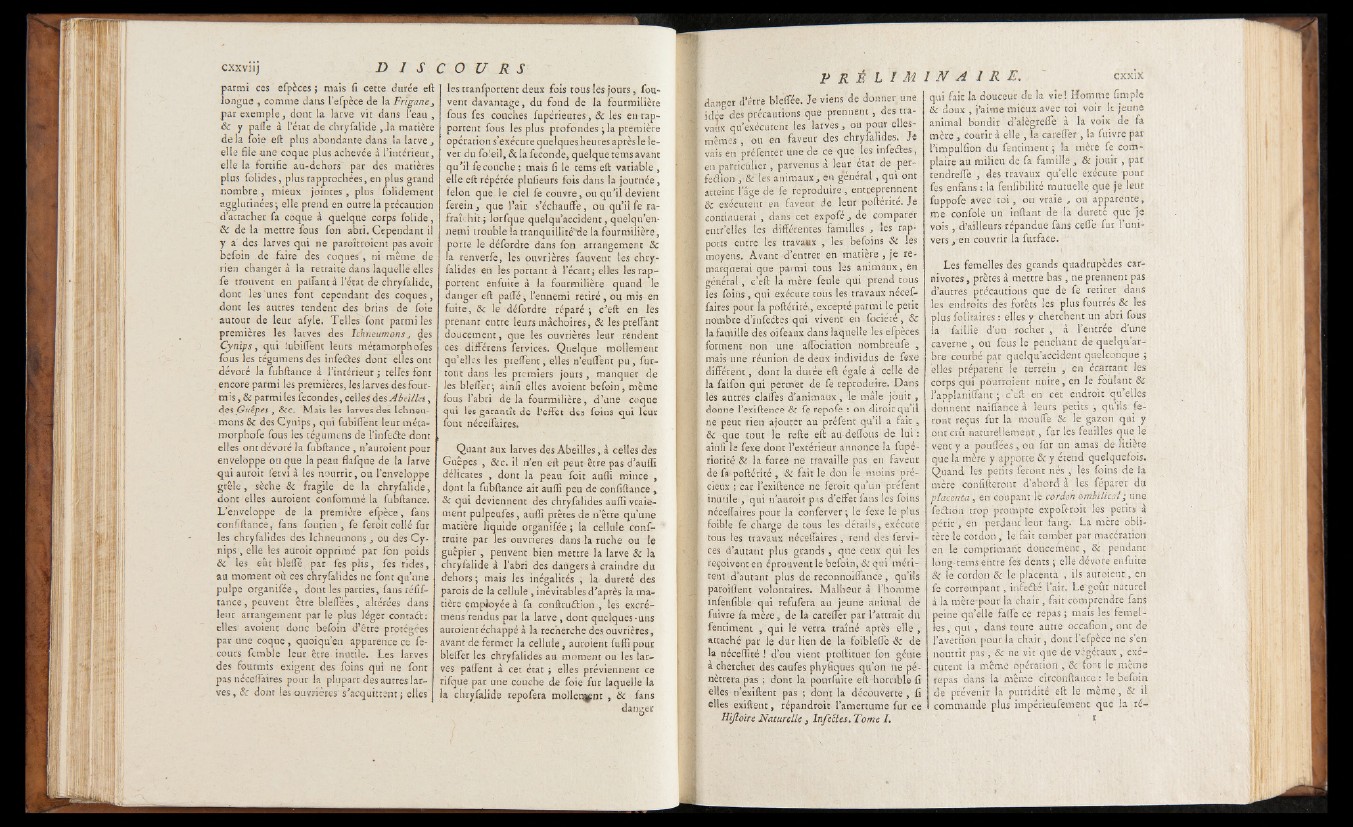 cxxviij
D I S C O U R S
parmi ces eſpèces ; mais ſi cette durée eſt
longue , comme dans l'eſpèce de la Frigane,
par exemple, dont la larve vit dans l'eau ,
& y paſſe à l'état de chryſalide , la matière
de la ſoie eſt plus abondante dans la larve ,
elle file une coque plus achevée à l'intérieur,
elle la fortifie au-dehors par des matières
plus ſolides, plus rapprochées, en plus grand
nombre , mieux jointes , plus ſolidement
agglutinées ; elle prend en outre la précaution
d'attacher ſa coque à quelque corps ſolide,
& de la mettre ſous ſon abri. Cependant il
y a des larves qui ne paroîtroient pas avoir
beſoin de faire des coques , ni même de
rien changer à la retraite dans laquelle elles
ſe trouvent en paſſant à l'état de chryſalide,
dont les unes ſont cependant des coques,
dont les autres tendent des brins de ſoie
autour de leur aſyle. Telles ſont parmi les
premières les larves des Ichneumons, des
Cynips, qui ſubiſſent leurs métamorphoſes
ſous les tégumens des inſectes dont elles ont
dévoré la ſubſtance à l'intérieur ; telles ſont
encore parmi les premières, les larves des four-
mis, & parmi les ſecondes, celles des Abeilles,
des Guêpes , &c. Mais les larves des Ichneu-
mons & des Cynips, qui ſubiſſent leur méta-
morphoſe ſous les tégumens de l'inſecte dont
elles ont dévoré la ſubſtance , n'auroient pour
enveloppe ou que la peau flaſque de la larve
qui auroit ſervi à les nourrir, ou l'enveloppe
grêle , sèche & fragile de la chryſalide,
dont elles auroient conſommé la ſubſtance.
L'enveloppe de la première eſpèce, ſans
conſiſtance, ſans ſoutien , ſe ſeroit collé ſur
les chryſalides des Ichneumons , ou des Cy-
nips , elle les auroit opprimé par ſon poids
& les eût bleſſé par ſes plis, ſes rides,
au moment où ces chryſalides ne ſont qu'une
pulpe organiſée , dont les parties, ſans réſiſ-
tance, peuvent être bleſſées , altérées dans
leur arrangement par le plus léger contact :
elles avoient donc beſoin d'être protégées
par une coque , quoiqu'en apparence ce ſe-
cours ſemble leur être inutile. Les larves
des fourmis exigent des ſoins qui ne ſont
pas néceſſaires pour la plupart des autres lar-
ves, & dont les ouvrières s'acquittent ; elles
les tranſportent deux fois tous les jours , ſou-
vent davantage, du fond de la fourmilière
ſous ſes couches ſupérieures , & les en rap-
portent ſous les plus profondes ; la première
opération s'exécute quelques heures après le le-
ver du ſoleil, & la ſeconde, quelque tems avant
qu'il ſe couche ; mais ſi le tems eſt variable ,
elle eſt répétée pluſieurs fois dans la journée,
ſelon que le ciel ſe couvre, ou qu'il devient
ſerein , que l'air s'échauffe , ou qu'il ſe ra-
fraîchit ; lorſque quelqu'accident, quelqu'en-
nemi trouble la tranquillité de la fourmilière,
porte le déſordre dans ſon arrangement &
la renverſe, les ouvrières ſauvent les chry-
ſalides en les portant à l'écart ; elles les rap-
portent enſuite à la fourmilière quand le
danger eſt paſſé , l'ennemi retiré , ou mis en
fuite , & le déſordre réparé ; c'eſt en les
prenant entre leurs mâchoires, & les preſſant
doucement , que les ouvrières leur rendent
ces différens ſervices. Quelque mollement
qu'elles les preſſent, elles n'euſſent pu , ſur-
tout dans les premiers jours , manquer de
les bleſſer ; ainſi elles avoient beſoin, même
ſous l'abri de la fourmilière, d'une coque
qui les garantît de l'effet des ſoins qui leur
ſont néceſſaires.
Quant aux larves des Abeilles, à celles des
Guêpes , &c. il n'en eſt peut être pas d'auſſi
délicates , dont la peau ſoit auſſi mince ,
dont la ſubſtance ait auſſi peu de conſiſtance ,
& qui deviennent des chryſalides auſſi vraie-
ment pulpeuſes, auſſi prêtes de n'être qu'une
matière liquide organiſée ; la cellule conſ-
truite par les ouvrières dans la ruche ou le
guêpier , peuvent bien mettre la larve & la
chryſalide à l'abri des dangers à craindre du
dehors ; mais les inégalités , la dureté des
parois de la cellule, inévitables d'après la ma-
tière employée à ſa conſtruction , les excré-
mens rendus par la larve , dont quelques-uns
auroient échappé à la recherche des ouvrières,
avant de fermer la cellule, auroient ſuffi pour
bleſſer les chryſalides au moment où les lar-
ves paſſent à cet état ; elles préviennent ce
riſque par une couche de ſoie ſur laquelle la
la chryſalide repoſera mollement , & ſans
danger
P R É L I M I N A I R E.
cxxix
danger d'être bleſſée. Je viens de donner une
idée des précautions que prennent , des tra-
vaux qu'exécutent les larves , ou pour elles-
mêmes , ou en faveur des chryſalides. Je
vais en préſenter une de ce que les inſectes,
en particulier , parvenus à leur état de per-
fection , & les animaux, en général , qui ont
atteint l'âge de ſe reproduire, entreprennent
& exécutent en faveur de leur poſtérité. Je
continuerai , dans cet expoſé , de comparer
entr'elles les différentes familles , les rap-
ports entre les travaux , les beſoins & les
moyens. Avant d'entrer en matière , je re-
marquerai que parmi tous les animaux, en
général , c'eſt la mère ſeule qui prend tous
les ſoins , qui exécute tous les travaux néceſ-
ſaires pour la poſtérité, excepté parmi le petit
nombre d'inſectes qui vivent en ſociété , &
la famille des oiſeaux dans laquelle les eſpèces
forment non une aſſociation nombreuſe ,
mais une réunion de deux individus de ſexe
différent , dont la durée eſt égale à celle de
la ſaiſon qui permet de ſe reproduire. Dans
les autres claſſes d'animaux , le mâle jouit ,
donne l'exiſtence & ſe repoſe : on diroit qu'il
ne peut rien ajouter au préſent qu'il a fait ,
& que tout le reſte eſt au-deſſous de lui :
ainſi le ſexe dont l'extérieur annonce la ſupé-
riorité & la force ne travaille pas en faveur
de ſa poſtérité , & fait le don le moins pré-
cieux ; car l'exiſtence ne ſeroit qu'un préſent
inutile , qui n'auroit pas d'effet ſans les ſoins
néceſſaires pour la conſerver ; le ſexe le plus
foible ſe charge de tous les détails, exécute
tous les travaux néceſſaires , rend des ſervi-
ces d'autant plus grands , que ceux qui les
reçoivent en éprouvent le beſoin, & qui méri-
tent d'autant plus de reconnoiſſance , qu'ils
paroiſſent volontaires. Malheur à l'homme
inſenſible qui refuſera au jeune animal de
ſuivre ſa mère , de la careſſer par l'attrait du
ſentiment , qui le verra traîné après elle ,
attaché par le dur lien de la foibleſſe & de
la néceſſité ! d'où vient proſtituer ſon génie
à chercher des cauſes phyſiques qu'on ne pé-
nètrera pas ; dont la pourſuite eſt horrible ſi
elles n'exiſtent pas ; dont la découverte , ſi
elles exiſtent , répandroit l'amertume ſur ce
qui fait la douceur de la vie ! Homme ſimple
& doux , j'aime mieux avec toi voir le jeune
animal bondir d'alégreſſe à la voix de ſa
mère , courir à elle , la careſſer , la ſuivre par
l'impulſion du ſentiment ; la mère ſe com-
plaire au milieu de ſa famille , & jouir , par
tendreſſe , des travaux qu'elle exécute pour
ſes enfans : la ſenſibilité mutuelle que je leur
ſuppoſe avec toi , ou vraie , ou apparente,
me conſole un inſtant de la dureté que je
vois , d'ailleurs répandue ſans ceſſe ſur l'uni-
vers , en couvrir la ſurface.
Les femelles des grands quadrupèdes car-
nivores, prêtes à mettre bas , ne prennent pas
d'autres précautions que de ſe retirer dans
les endroits des forêts les plus fourrés & les
plus ſolitaires : elles y cherchent un abri ſous
la ſaillie d'un rocher , à l'entrée d'une
caverne , ou ſous le penchant de quelqu'ar-
bre courbé par quelqu'accident quelconque ;
elles préparent le terrein , en écartant les
corps qui pourroient nuire, en le foulant &
l'applaniſſant ; c'eſt en cet endroit qu'elles
donnent naiſſance à leurs petits , qu'ils ſe-
ront reçus ſur la mouſſe & le gazon qui y
ont crû naturellement , ſur les feuilles que le
vent y a pouſſées , ou ſur un amas de litière
que la mère y apporte & y étend quelquefois.
Quand les petits ſeront nés , les ſoins de la
mère conſiſteront d'abord à les ſéparer du
placenta , en coupant le cordon ombilical ; une
ſection trop prompte expoſeroit les petits à
périr , en perdant leur ſang. La mère obli-
tère le cordon , le fait tomber par macération
en le comprimant doucement , & pendant
long-tems entre ſes dents ; elle dévore enſuite
& le cordon & le placenta , ils auroient , en
ſe corrompant , infecté l'air. Le goût naturel
à la mère pour la chair , fait comprendre ſans
peine qu'elle faſſe ce repas ; mais les femel-
les , qui , dans toute autre occaſion , ont de
l'averſion pour la chair , dont l'eſpèce ne s'en
nourrit pas , & ne vit que de végétaux , exé-
cutent la même opération , & font le même
repas dans la même circonſtance : le beſoin
de prévenir la putridité eſt le même , & il
commande plus impérieuſement que la ré-
Hiſtoire Naturelle , Inſectes. Tome I.
r